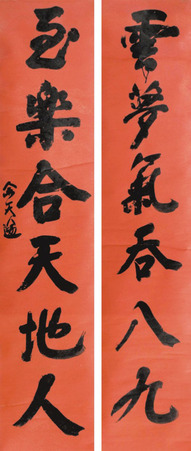 雲夢氣吞八九
至樂合天地人